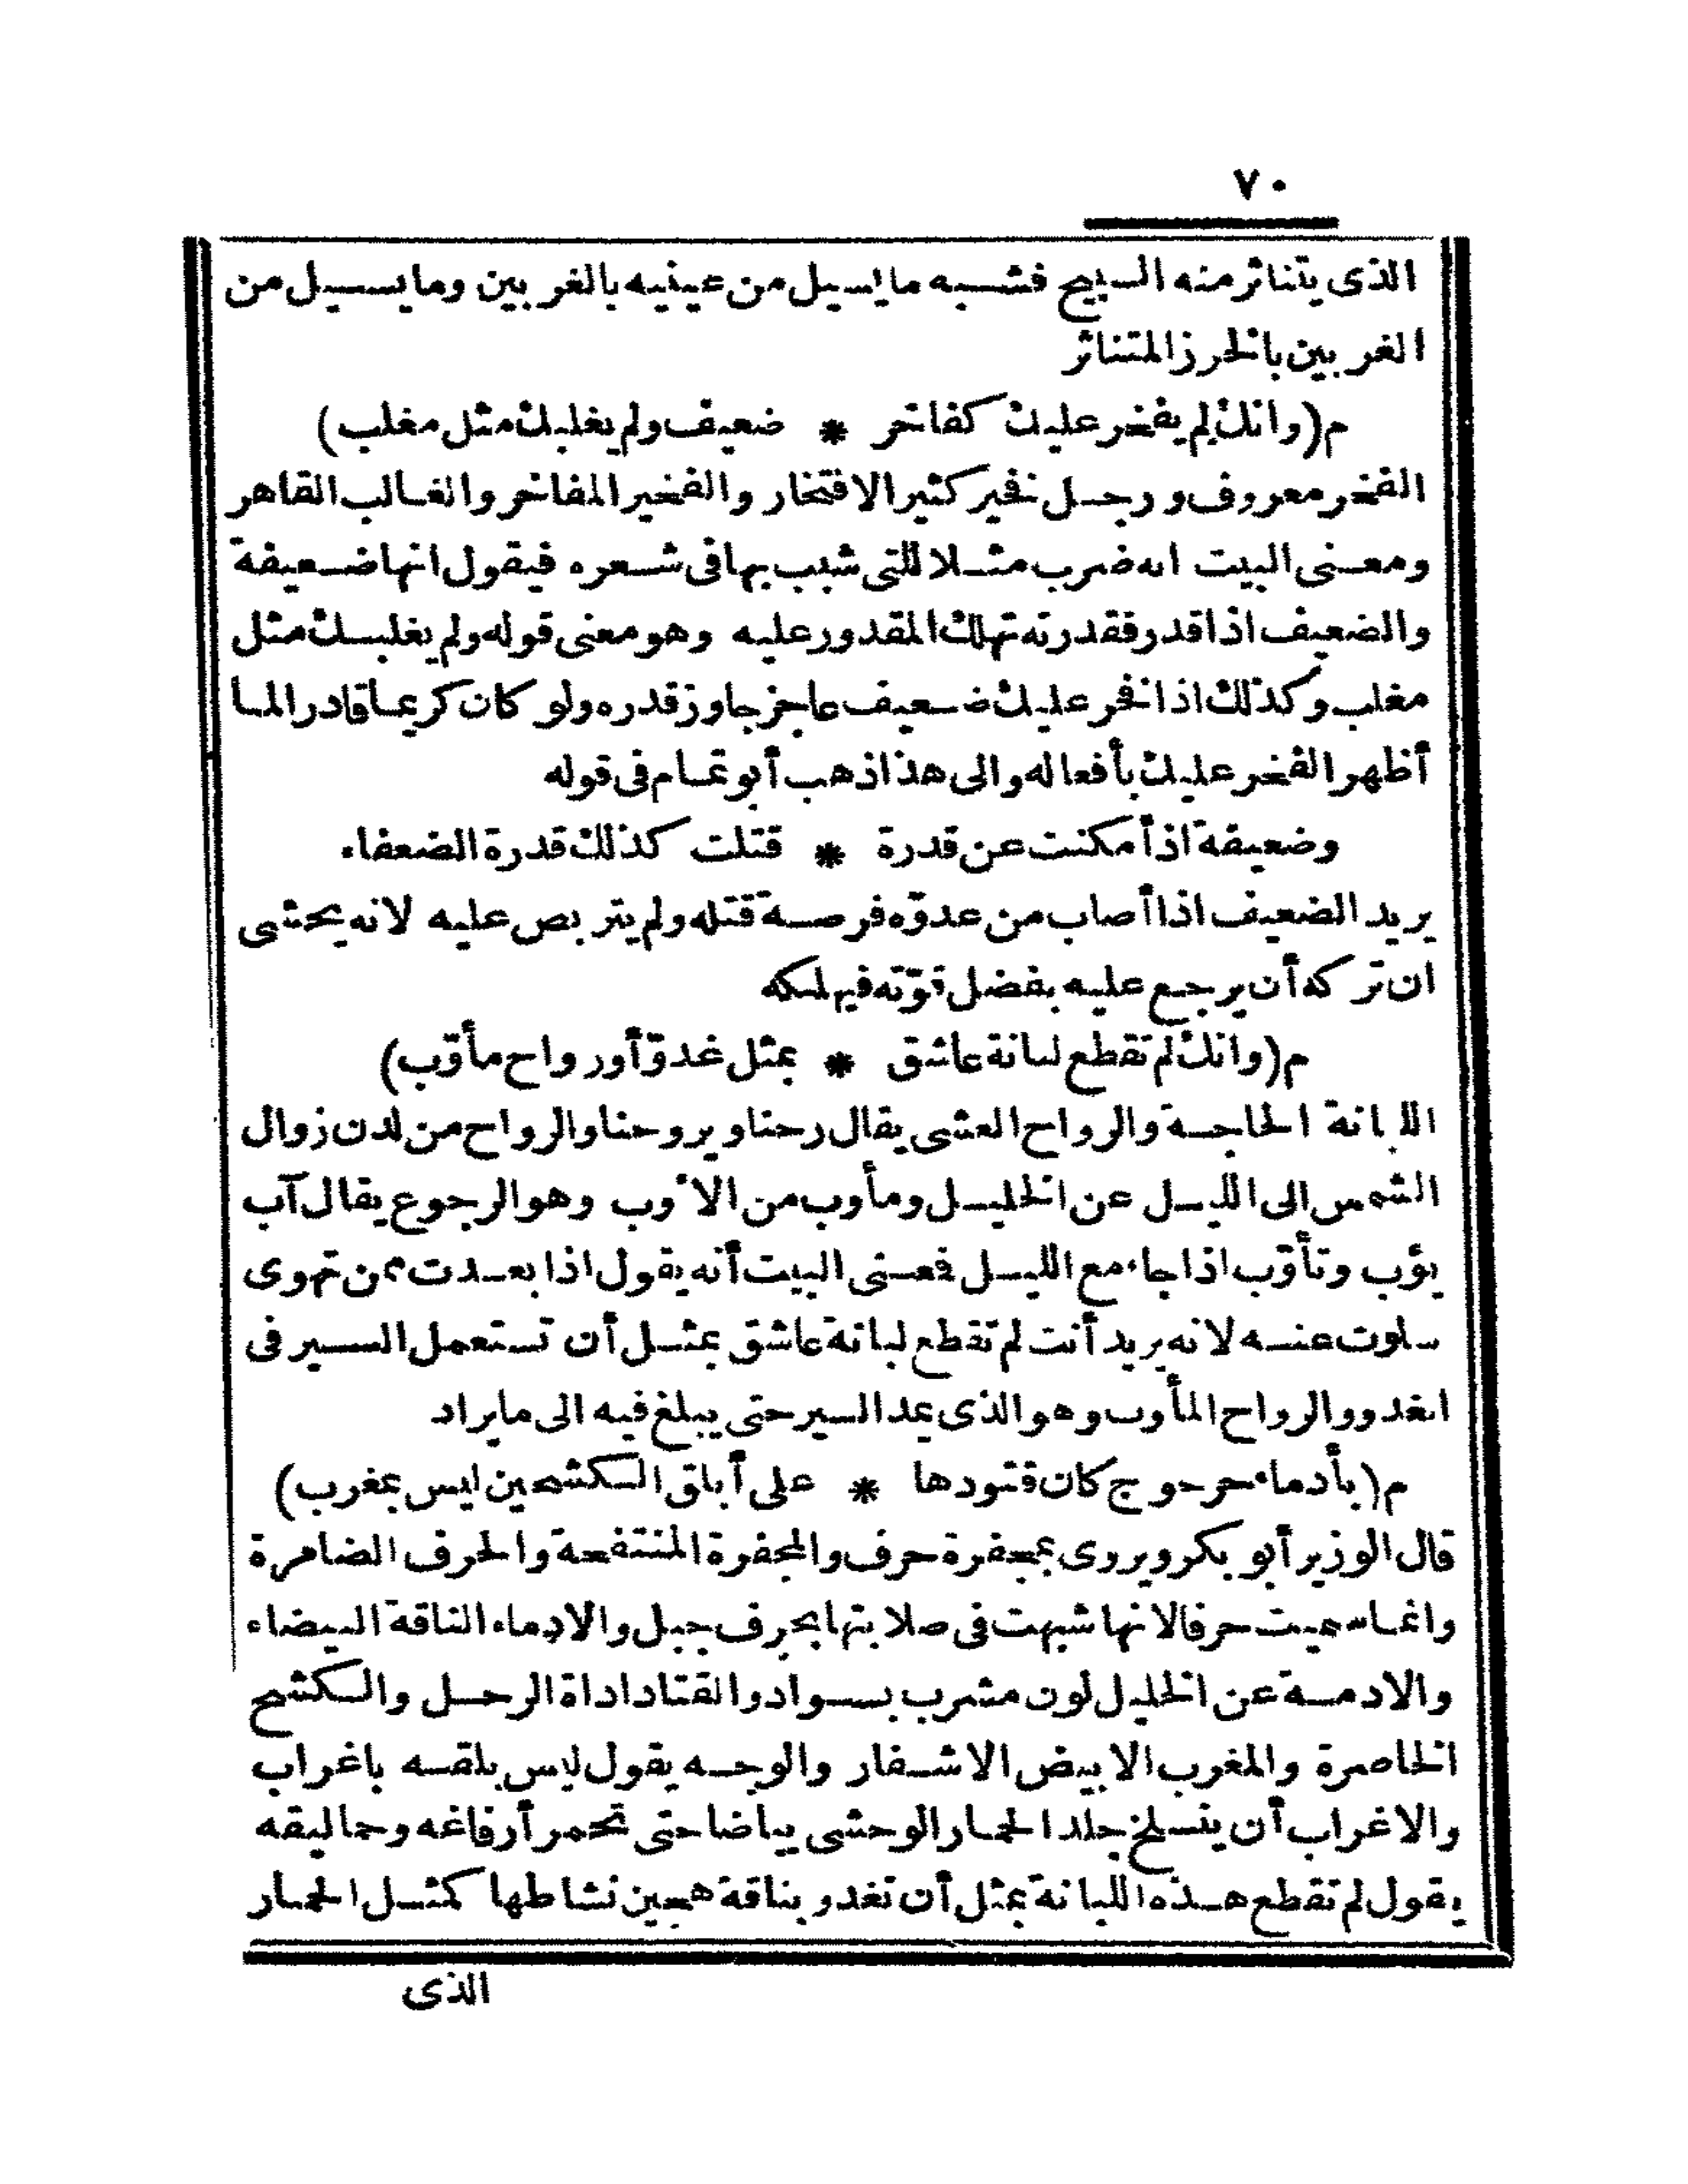 ٧٠
الذى يتناثر منه السبج فشبه ما يسيل من عينيه بالغربين وما يسيل من
الغربين بالخرز المتناثر
م (وانك لم يفخر عليك كفاخر * ضعيف ولم يغلبك مثل مغلب)
الفخر معروف ورجل فخير كثير الافتخار والفخير المفاخر والغالب القاهر
ومعنى البيت انه ضرب مثلا للتى شبب بها فى شعره فيقول انها ضعيفة
والضعيف اذا قدر فقدرته تهلك المقدور عليه وهو معنى قوله ولم يغلبك مثل
مغلب وكذلك اذا فخر عليك ضعيف عاجز جاوز قدره ولو كان كريما قادرا لما
أظهر الفخر عليك بأفعاله والى هذا ذهب أبو تمام فى قوله
وضعيفة اذا أمكنت عن قدرة * قتلت كذلك قدرة الضعفاء
يريد الضعيف اذا أصاب من عدوّه فرصة قتله ولم يتربص عليه لانه يخشى
ان تركه أن يرجع عليه بفضل قوّته فيهلكه
م (وانك لم تقطع لبانة عاشق * بمثل غدوّ أو رواح مأوّب)
اللبانة الحاجة والرواح العشى يقال رحنا ويروحنا والرواح من لدن زوال
الشمس الى الليل عن الخليل ومأوب من الأوب وهو الرجوع يقال آب
يؤب وتأوّب اذا جاء مع الليل فمعنى البيت أنه يقول اذا بعدت ممن تهوى
سلوت عنه لانه يريد أنت لم تقطع لبانة عاشق بمثل أن تستعمل السير فى
الغدو والرواح المأوب وهو الذى يمد السير حتى يبلغ فيه الى ما يراد
م (بأدماء حرجوج كان قتودها * على أبلق الكشحين ليس بمغرب)
قال الوزير أبو بكر ويروى بمجفرة حرف والمجفرة المنتفجة والحرف الضامرة
وانما سميت حرفا لانها شبهت فى صلابتها بحرف جبل والادماء الناقة البيضاء
والادمة عن الخليل لون مشرب بسواد والقتاد اداة الرحل والكشح
الخاصرة والمغرب الابيض الاشفار والوجه يقول ليس بلقه باغراب
والاغراب أن ينسلخ جلد الحمار الوحشى بياضا حتى تحمر أرفاغه وحماليقه
يقول لم تقطع هذه اللبانة بمثل أن تغدو بناقة هجين نشاطها كمثل الحمار
الذى